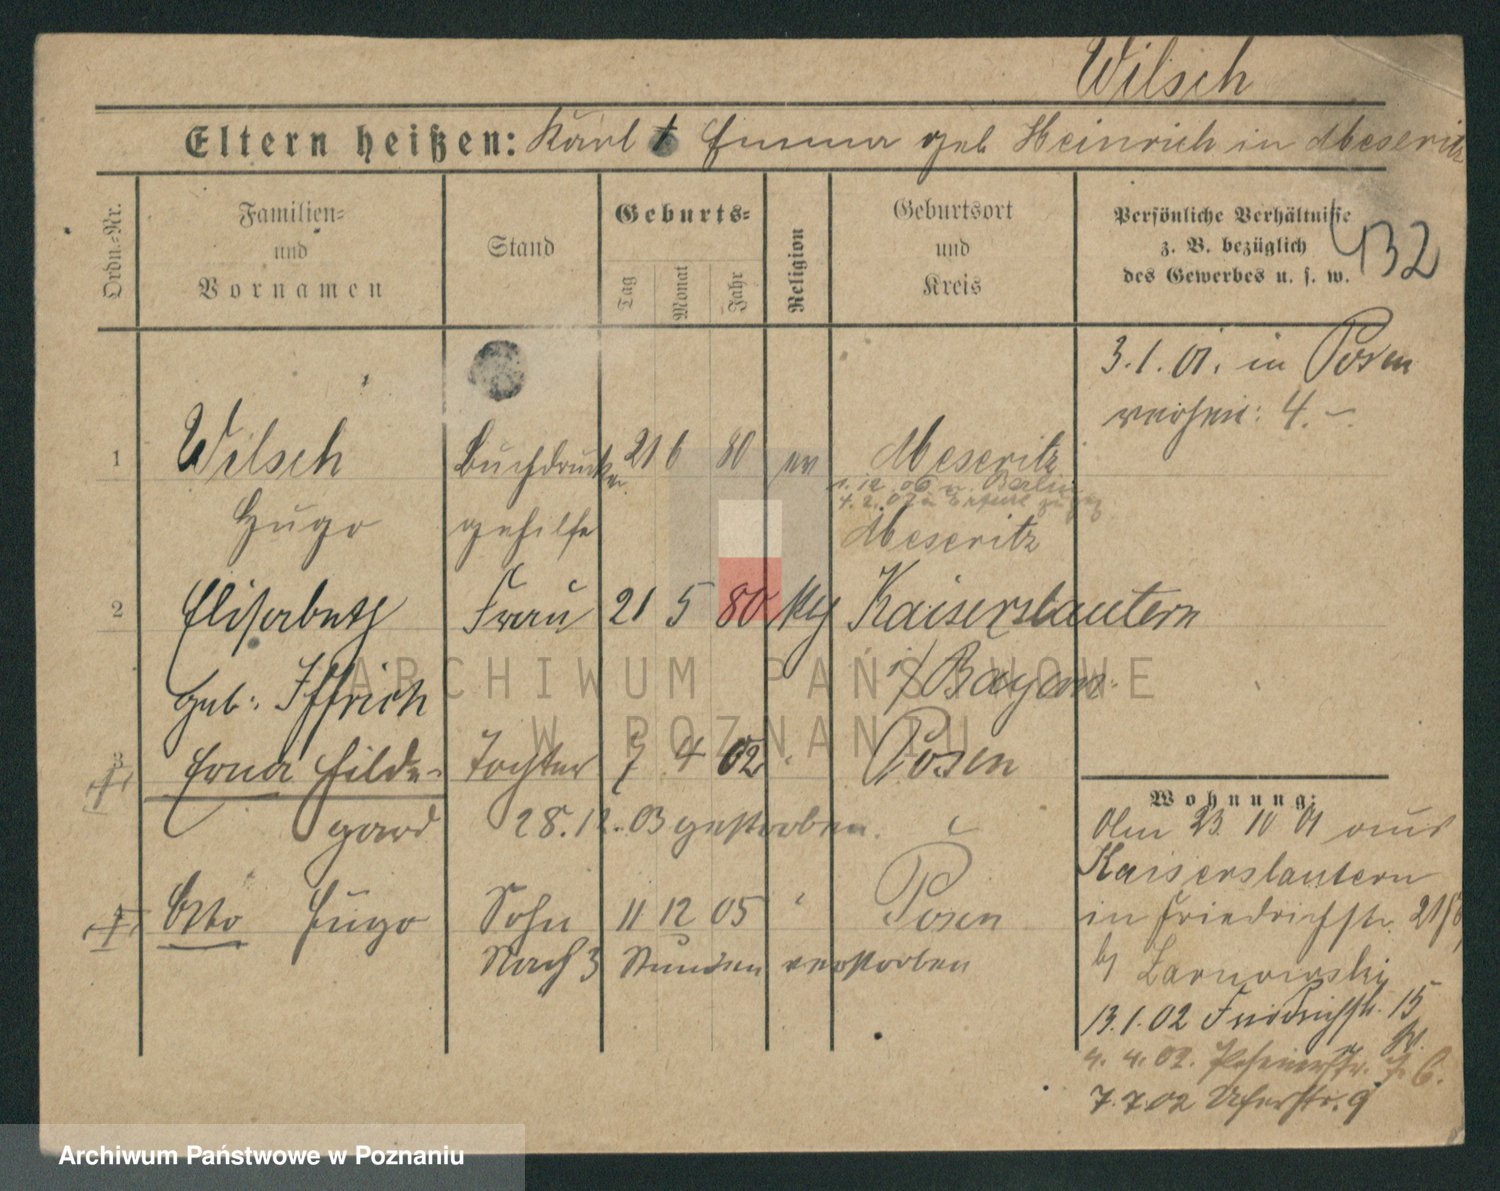 Wilsch
Eltern heißen: Karl † Emma geb Heinrich in Meseritz
Ordn.-Nr.
Familien-
und
Vornamen
Stand
Geburts-
Tag
Monat
Jahr
Religion
Geburtsort
und
Kreis
Persönliche Verhältnisse
z. B. bezüglich
des Gewerbes u. s. w.
432
3.1.01. in Posen
4.–
1 Wilsch Buchdrucker 21 6 80 ev Meseritz
1.12.06 n. Berlin
4.2.07 Erfurt
Hugo gehilfe Meseritz
2 Elisabeth Frau 21 5 80 Kaiserslautern
geb: Iffrich i/Bayern
3 Erna Hilde- Tochter 7 4 02 " Posen
gard 28.12.03 gestorben.
4 Otto Hugo Sohn 11 12 05 " Posen
Nach 3 Stunden verstorben
Wohnung:
Am 23 10 01 aus
Kaiserslautern
in Friedrichstr. 21
b/
13.1.02 Friedrichstr. 15
4.4.02.
7.7.02 Uferstr. 9
ARCHIWUM PAŃSTWOWE
W POZNANIU
Archiwum Państwowe w Poznaniu